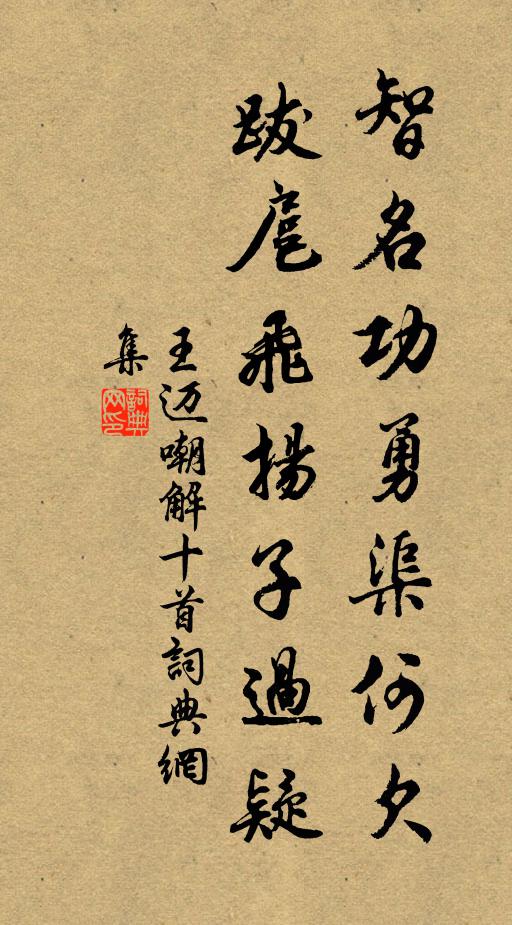 智名功勇渠何欠
跋扈飛揚子過疑
王迈嘲解十首詞典網
集
詞典
网印